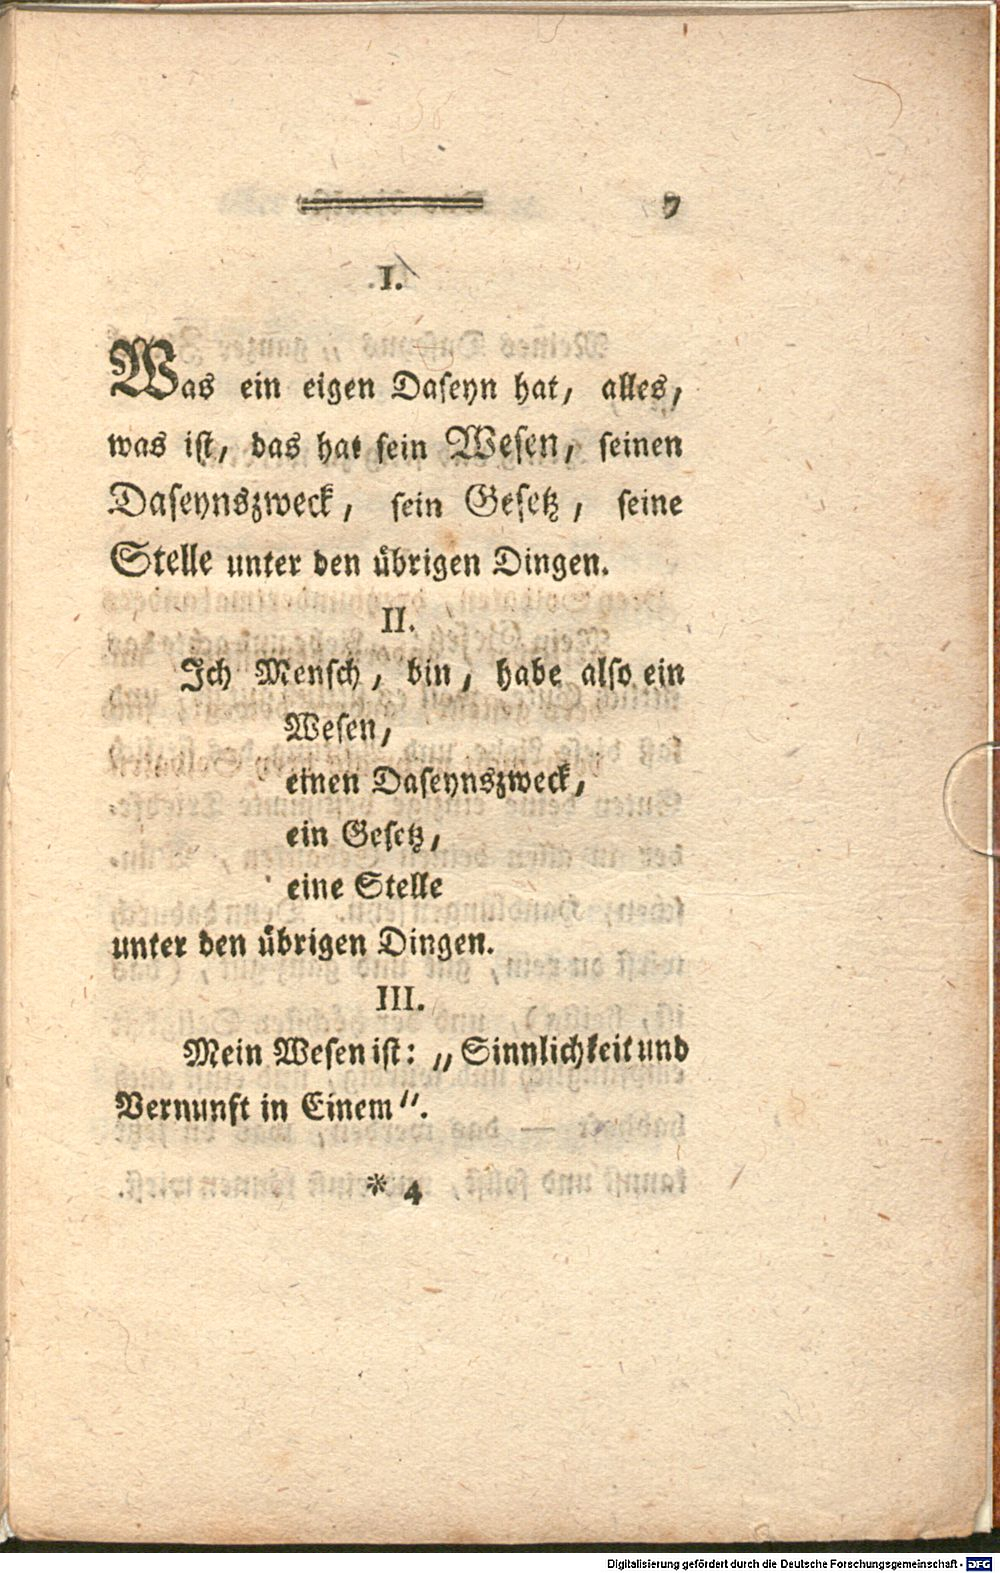 7
I.
Was ein eigen Daſeyn hat, alles,
was iſt, das hat ſein Weſen, ſeinen
Daſeynszweck, ſein Geſetz, ſeine
Stelle unter den übrigen Dingen.
II.
Ich Menſch, bin, habe alſo ein
Weſen,
einen Daſeynszweck,
ein Geſetz,
eine Stelle
unter den übrigen Dingen.
III.
Mein Weſen iſt: „Sinnlichkeit und
Vernunft in Einem“.
* 4
Digitalisierung gefördert durch die Deutsche Forschungsgemeinschaft - DFG